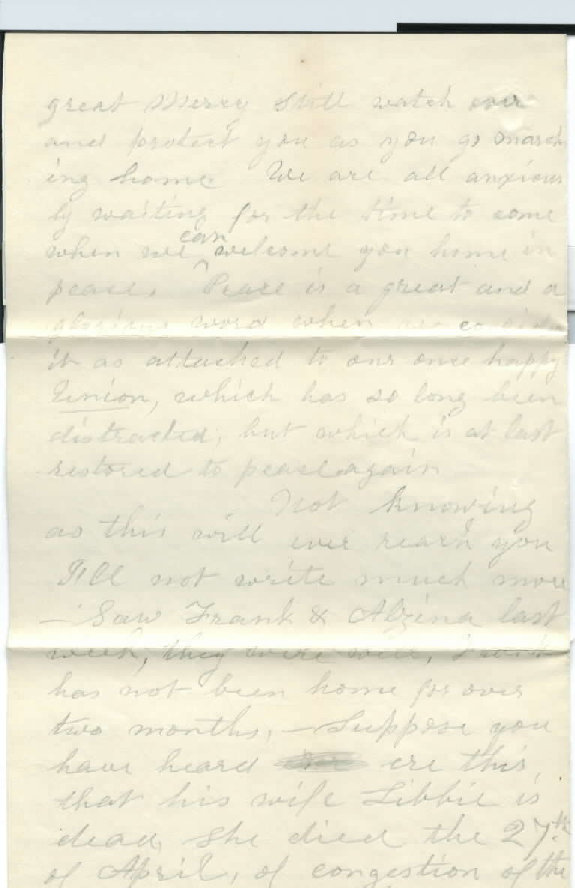 great Mercy still watch over
and protect you as you go march
ing home. We are all anxious
ly waiting for the time to come
when we can welcome you home in
peace. Peace is a great and a
glorious word when we
it as attached to our once happy
Union, which has so long been
distracted, but which is at last
restored to peace again
Not knowing
as this will ever reach you
I'll not write much more
— Saw Frank & Alzina last
week, they were well,
has not been home for over
two months, — Suppose you
have heard ere this
that his wife Libbie is
dead, she died the 27th
of April, of congestion of the